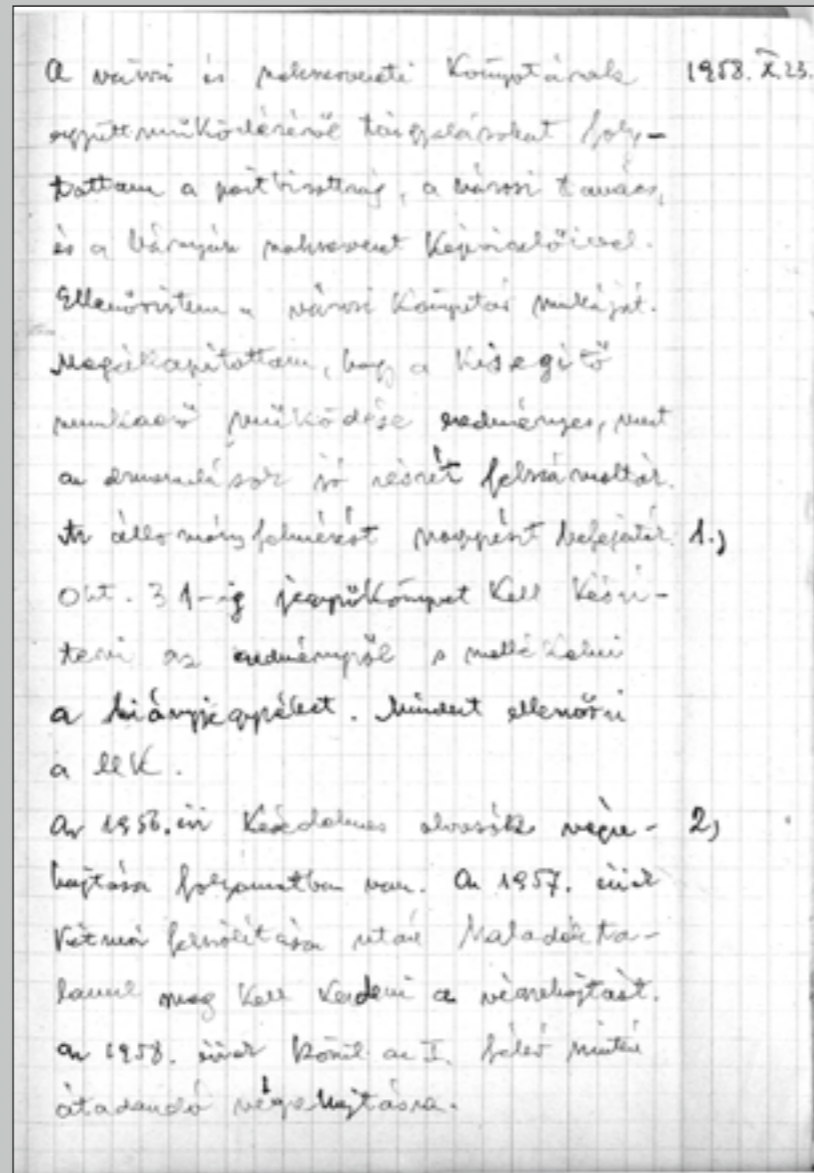 A városi és szakszervezeti Könyvtárak 1958. X. 23.
együttműködéséről tárgyalásokat foly-
tattam a pártbizottság, a városi tanács,
és a bányász szakszervezet Képviselőivel.
Ellenőriztem a városi Könyvtár munkáját.
Megállapítottam, hogy a Kisegítő
munkaerő működése eredményes, mert
a jó részét felszámolták.
Az állomány felmérését nagyrészt befejezték. 1.)
Okt. 31-ig jegyzőkönyvet Kell Készí-
teni az eredményről s mellékelni
a hiányjegyzéket. Mindezt ellenőrzi
a MK.
Az 1956. évi Késedelmes olvasók végre- 2)
hajtása folyamatban van. Az 1957. évieket
Kétszeri felszólítása után haladékta-
lanul meg Kell Kezdeni a végrehajtást.
Az 1958. éviek közül az I. félév szintén
átadandó végrehajtásra.